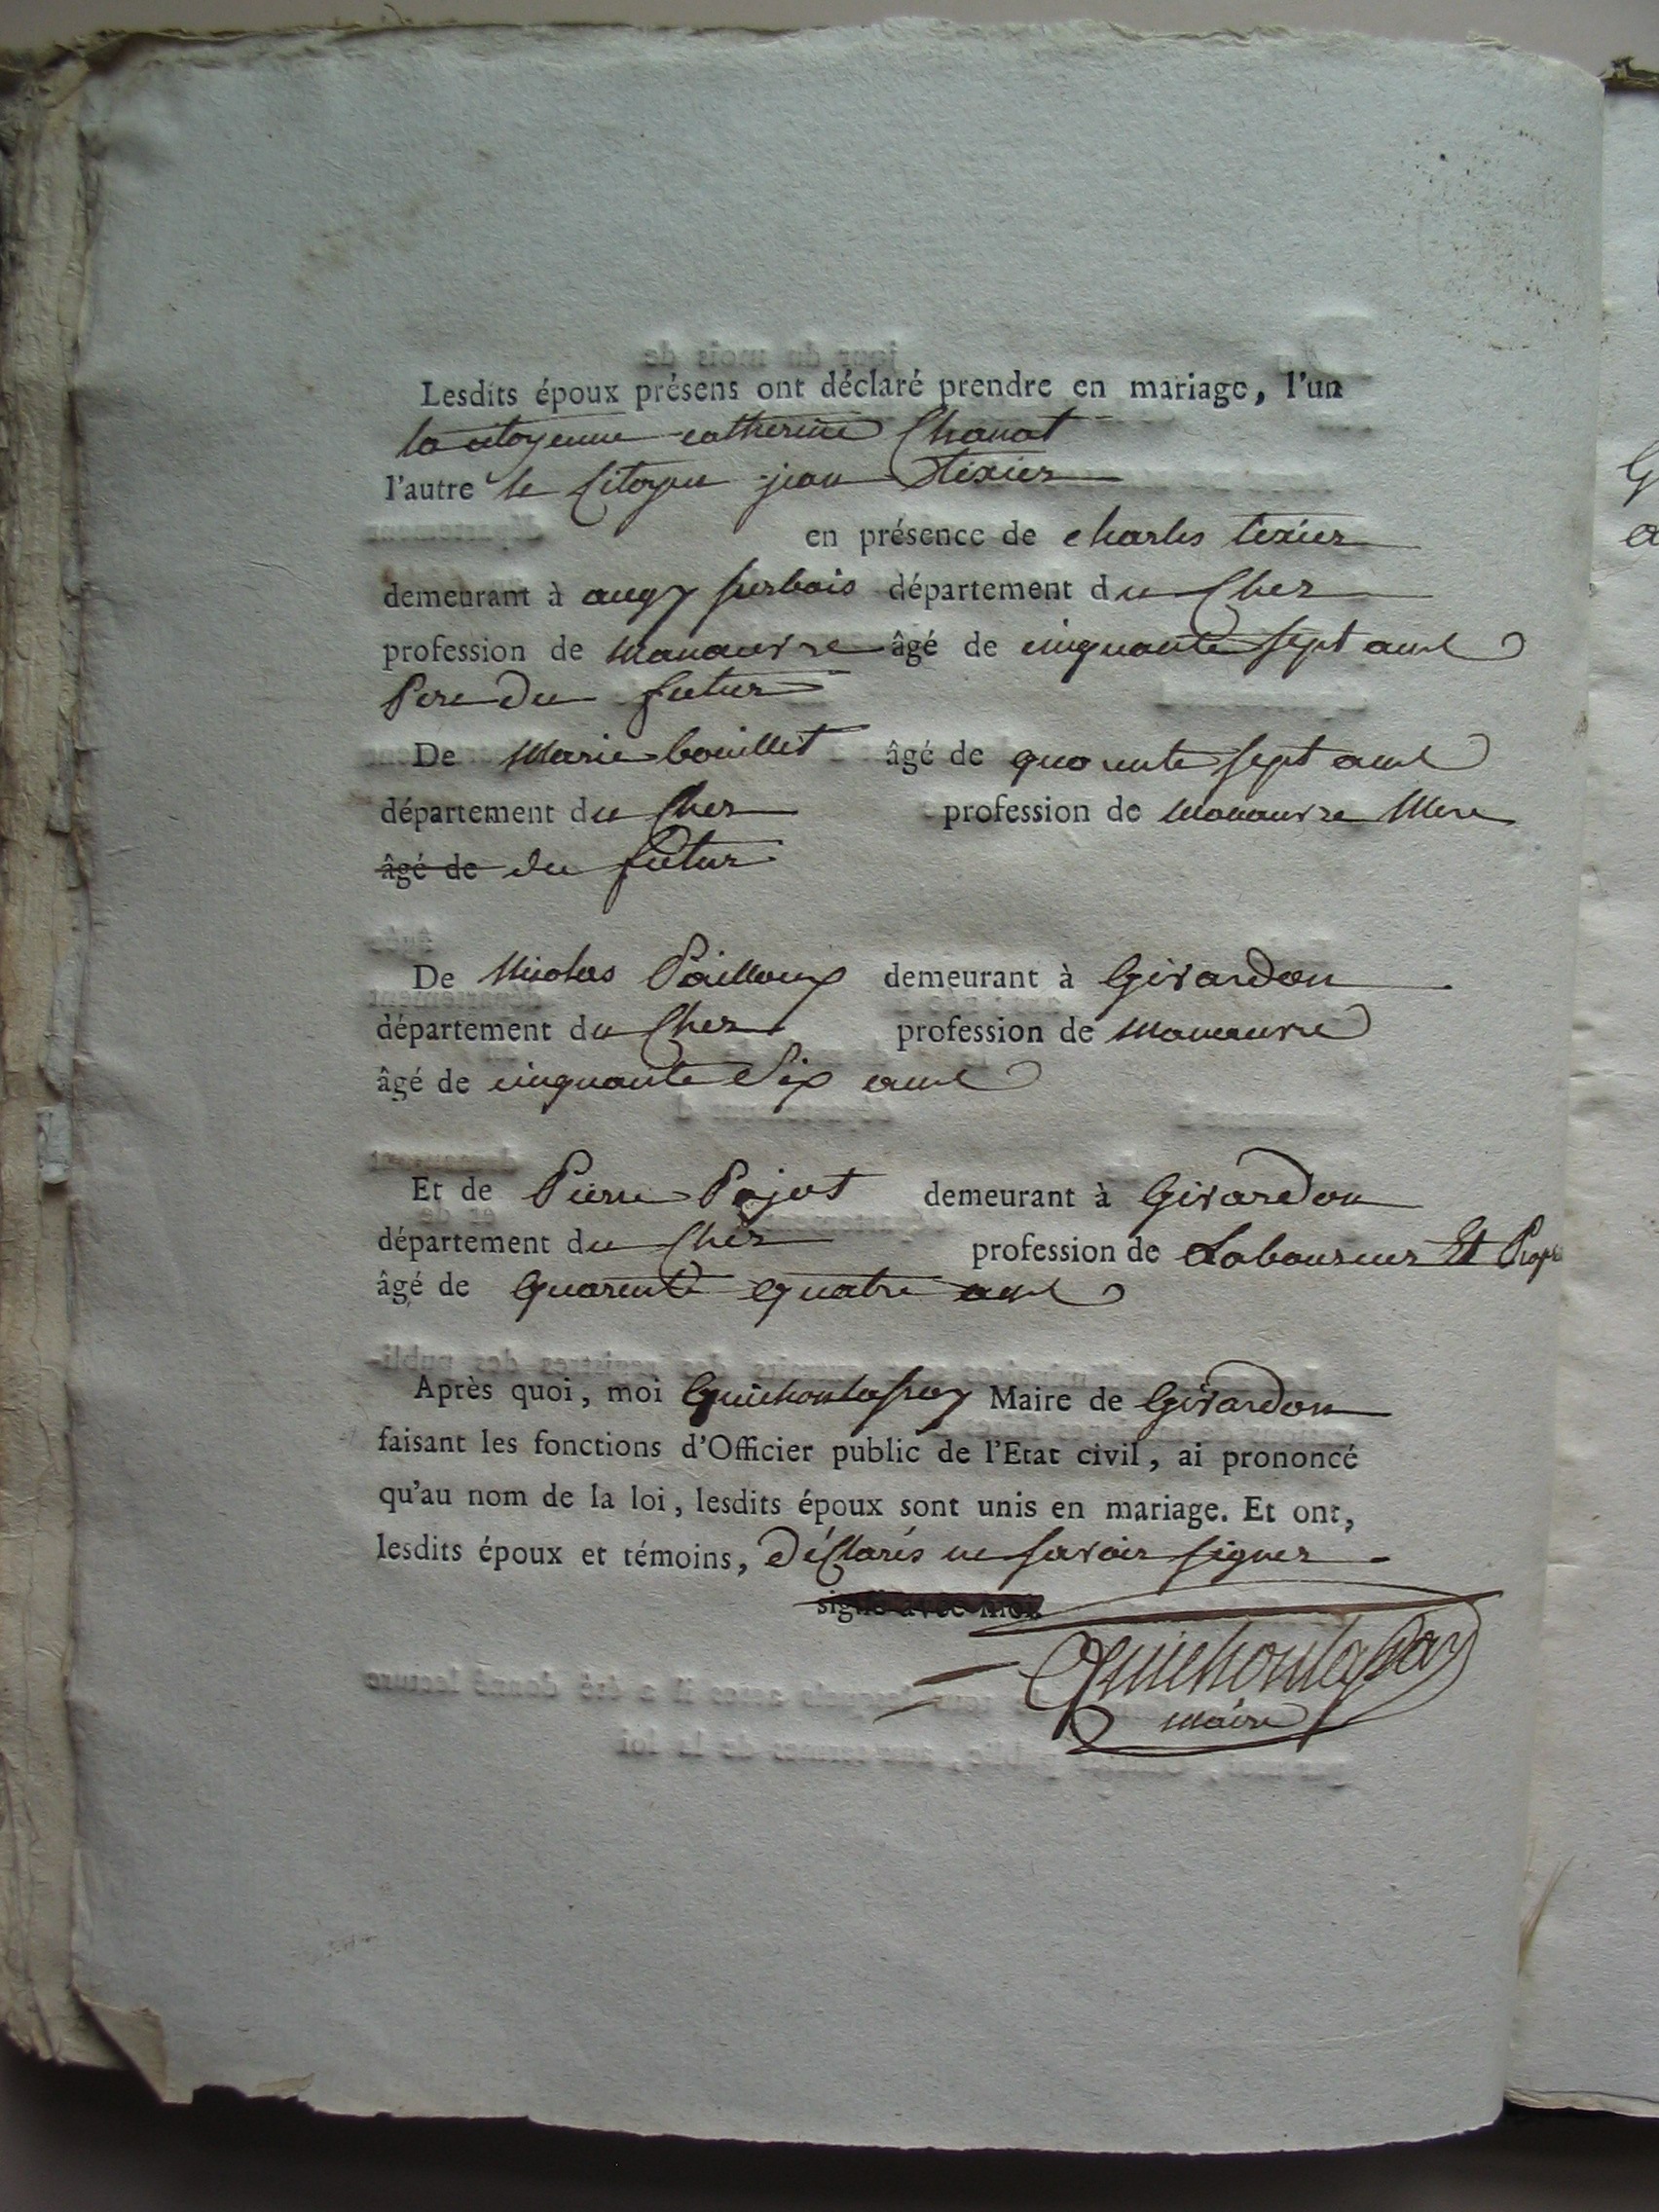 Lesdits époux présens ont déclaré prendre en mariage, l'un
la citoyenne catherine Chanat
l'autre le Citoyen jean tixier
en présence de charles tixier
demeurant à augy surbois département du Cher
profession de manauvre âgé de cinquante sept ans
Pere du futur
De Marie bouillet âgé de quarente sept ans
département du Cher profession de manauvre Mere
âgé de du futur
De Nicolas Pailloux demeurant à Givardon
département du Cher profession de manauvre
âgé de cinquante Six ans
Et de Pierre Pajot demeurant à Givardon
département du Cher profession de Laboureur Et Propr
âgé de quarente quatre ans
Après quoi, moi Guichonlaspay Maire de Givardon
faisant les fonctions d'Officier public de l'Etat civil, ai prononcé
qu'au nom de la loi, lesdits époux sont unis en mariage. Et ont,
lesdits époux et témoins, déclarés ne savoir signer
signé avec moi.
maire